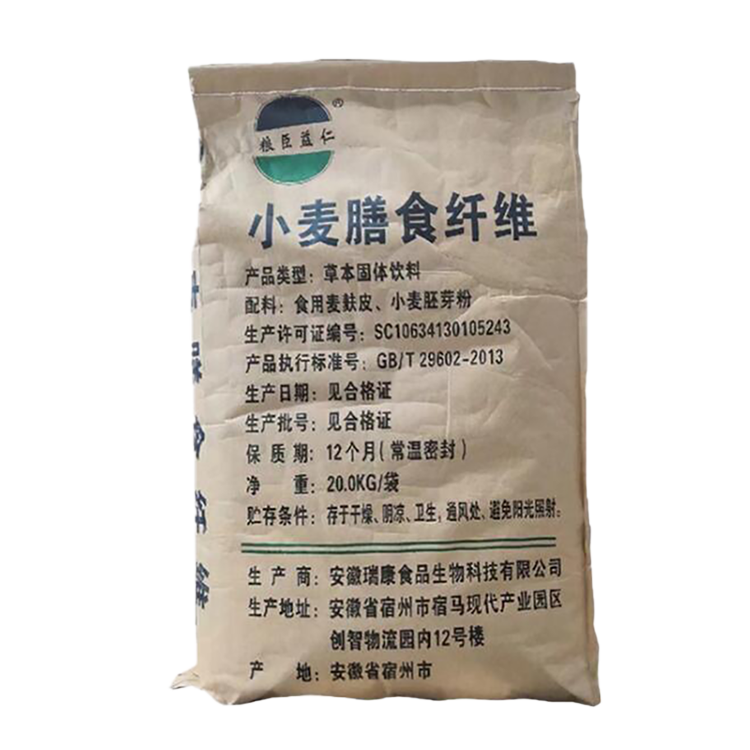 粮臣益仁®
小麦膳食纤维
产品类型：草本固体饮料
配料：食用麦麸皮、小麦胚芽粉
生产许可证编号：SC10634130105243
产品执行标准号：GB/T 29602-2013
生产日期：见合格证
生产批号：见合格证
保质期：12个月(常温密封)
净重：20.0KG/袋
贮存条件：存于干燥、阴凉、卫生，通风处、避免阳光照射。
生产商：安徽瑞康食品生物科技有限公司
生产地址：安徽省宿州市宿马现代产业园区
创智物流园内12号楼
产地：安徽省宿州市
膳食纤维